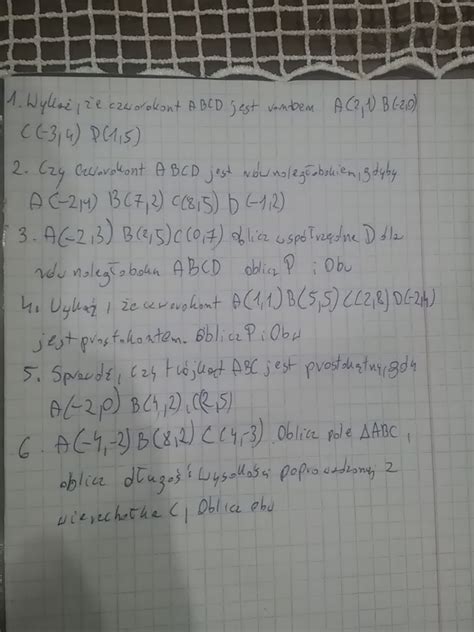 1. Wykaż, że czworokont ABCD jest rombem A(2,1) B(-2,0)
C(-3,4) D(1,5)
2. Czy czworokont ABCD jest równoległobokiem, gdyby
A(-2,-1) B(7,2) C(8,5) D(-1,2)
3. A(-2,3) B(2,5) C(0,7) oblicz współrzędne D dla
równoległoboku ABCD oblicz P i Obw
4. Wykaż, że czworokont A(1,1) B(5,5) C(2,8) D(-2,4)
jest prostokontem. Oblicz P i Obw
5. Sprawdź, czy trójkąt ABC jest prostokątny, gdy
A(-2,0) B(4,2), C(2,5)
6. A(-4,-2) B(8,2) C(4,-3). Oblicz pole ΔABC,
oblicz długość wysokości poprowadzonej z
wierzchołka C, Oblicz obw